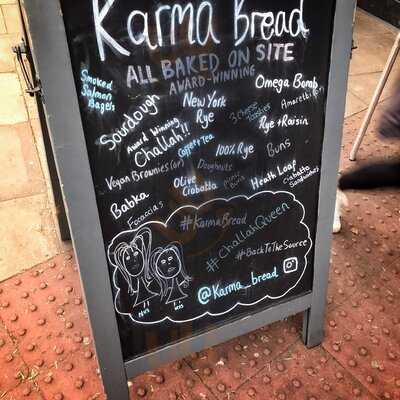 Karma Bread
ALL BAKED ON SITE
AWARD-WINNING
Smoked
Salmon
Bagels
Omega Bomb
Sourdough
New York
Rye
3 Cheese
Amaretti
Award Winning
Challah!!
Coffee + Tea
Rye + Raisin
100% Rye
Buns
Vegan Brownies
Doughnuts
Babka
Olive
Ciabatta
Heath Loaf
Ciabatta
Sandwiches
Focaccia's
#KarmaBread
#ChallahQueen
#BackToTheSource
@Karma_bread